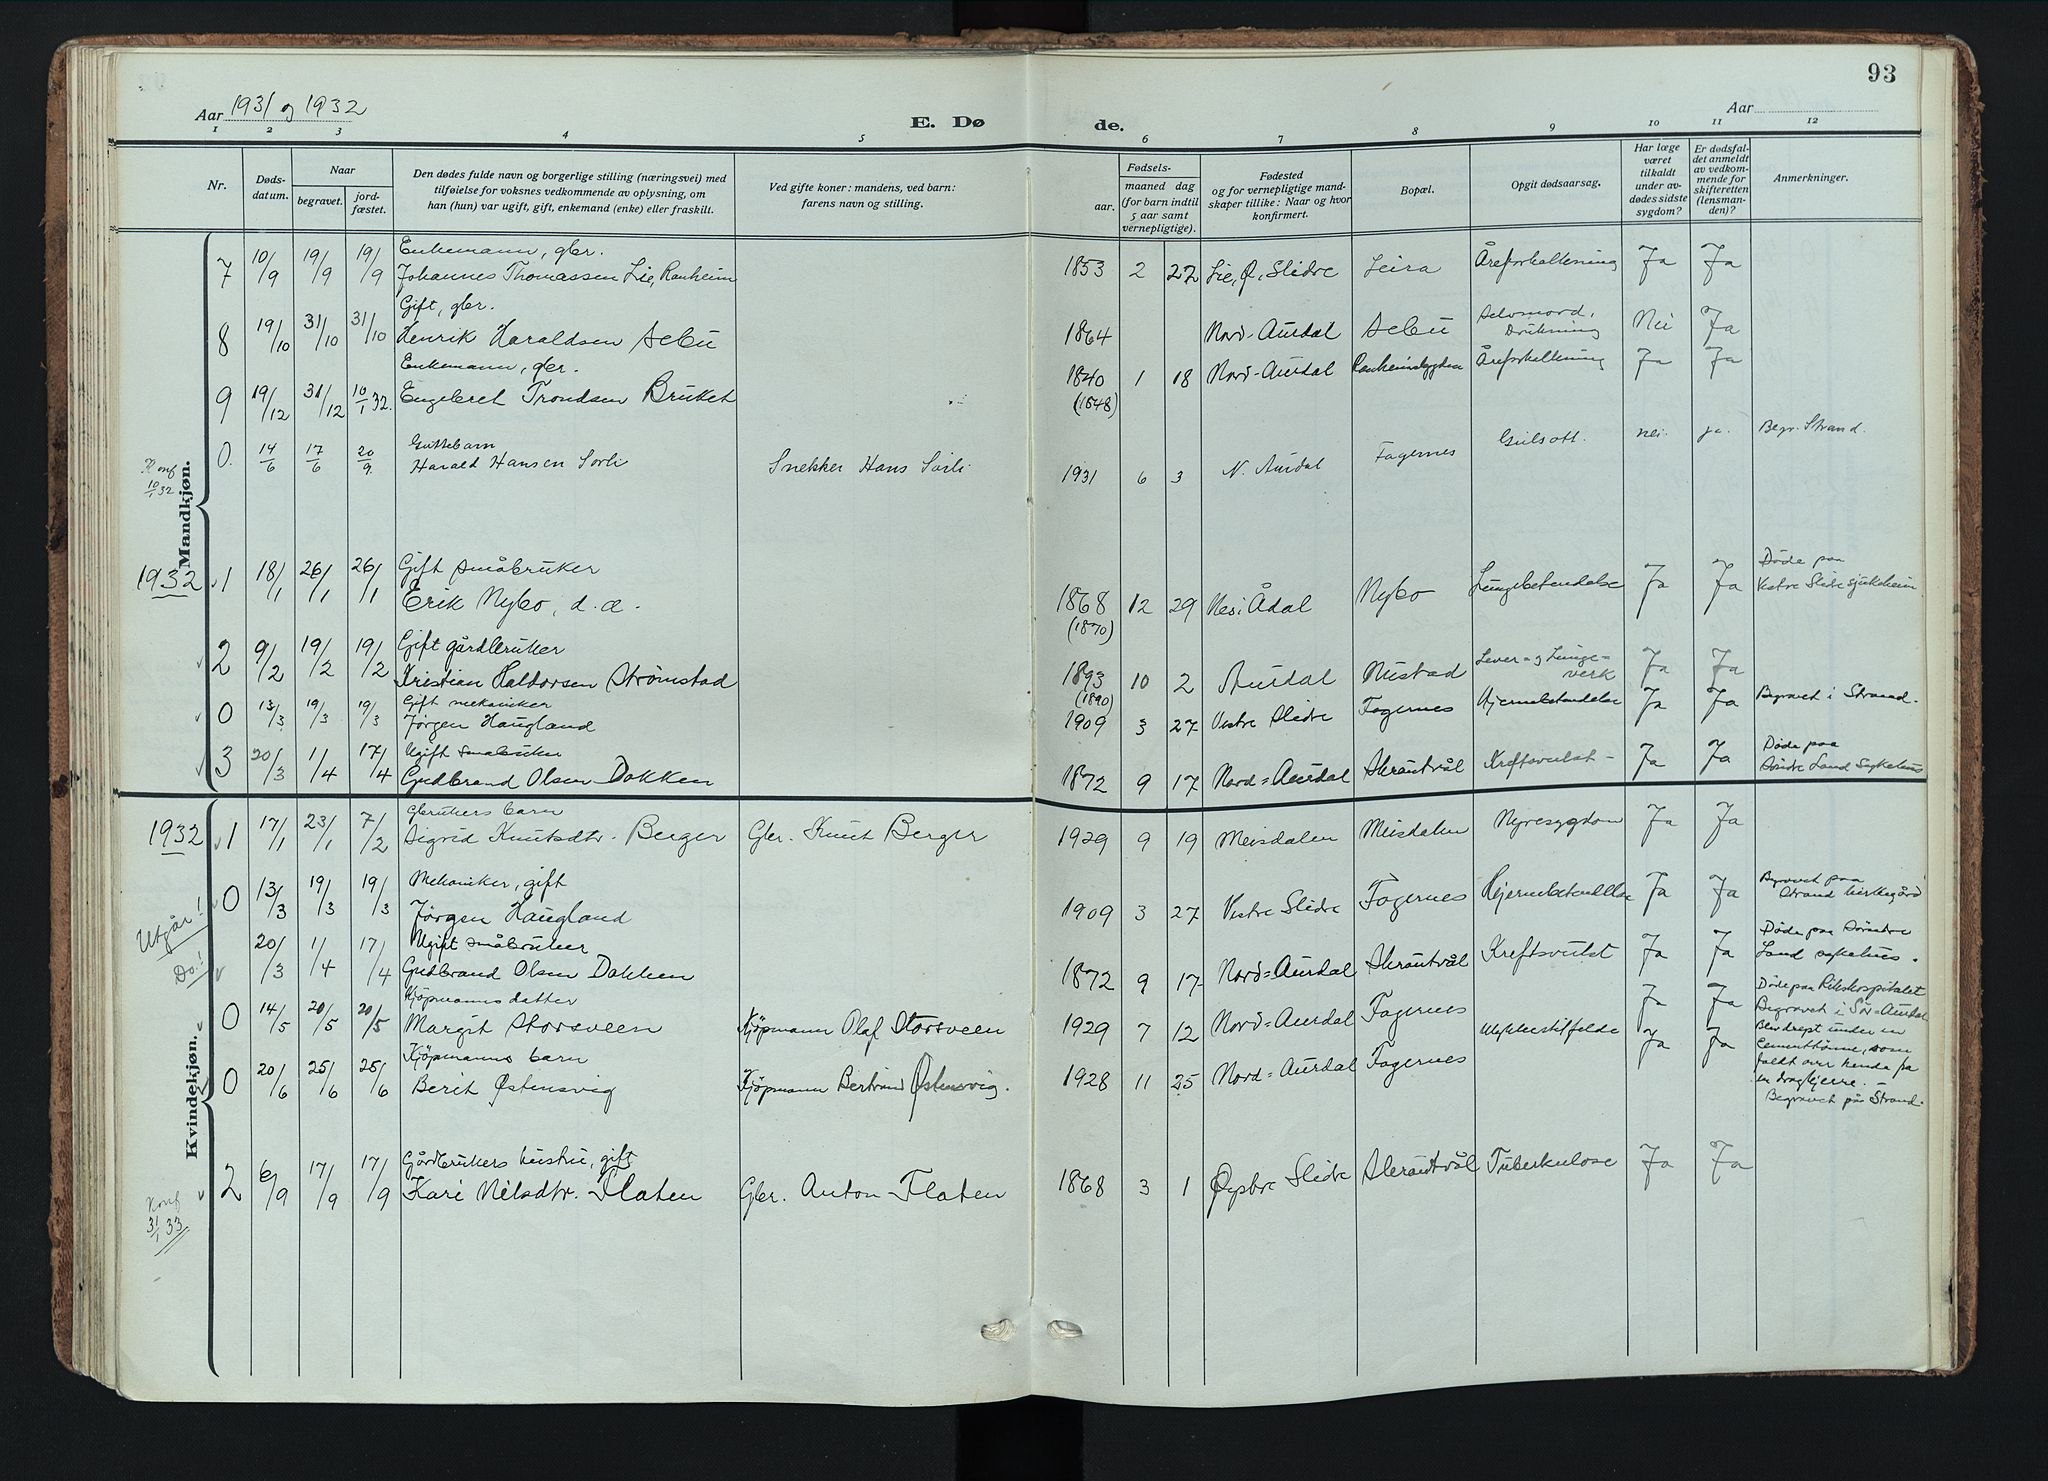 93
Aar 1931 og 1932
E. Dø de.
Aar
1 2 3 4 5 6 7 8 9 10 11 12
Nr.
Døds-
datum.
Naar
begravet.
jord-
fæstet.
Den dødes fulde navn og borgerlige stilling (næringsvei) med
tilføielse for voksnes vedkommende av oplysning, om
han (hun) var ugift, gift, enkemand (enke) eller fraskilt.
Ved gifte koner: mandens, ved barn:
farens navn og stilling.
Fødsels-
aar.
maaned dag
(for barn indtil
5 aar samt
vernepligtige).
Fødested
og for vernepligtige mand-
skaper tillike: Naar og hvor
konfirmert.
Bopæl.
Opgit dødsaarsag.
Har læge
været
tilkaldt
under av-
dødes sidste
sygdom?
Er dødsfal-
det anmeldt
av vedkom-
mende for
skifteretten
(lensman-
den)?
Anmerkninger.
Mandkjøn.
Enkemann, gbr.
7 10/9 19/9 19/9 Johannes Thomassen Lie, Ranheim 1853 2 27 Lie, Ø. Slidre Leira Åreforkalkning Ja Ja
Gift, gbr.
8 19/10 31/10 31/10 Henrik Haraldsen Aebu 1864 Nord-Aurdal Aebu Selvmord, Drukning Nei Ja
Enkemann, gbr.
9 19/12 31/12 10/1 32. Engebret Trondsen Bruket 1840 (1848) 1 18 Nord-Aurdal Ranheimsbygden Åreforkalkning Ja Ja
Guttebarn
0. 14/6 17/6 20/9 Harald Hansen Sørli Snekker Hans Sørli 1931 6 3 N. Aurdal Fagernes Gulsott. nei. ja. Begr. Strand.
Konf
10/1 32
1932 1 18/1 26/1 26/1 Gift småbruker
Erik Nybo, d. æ. 1868 (1870) 12 29 Nes i Ådal Nybo Lungebetendelse Ja Ja Døde paa
Vestre Slidre sjukeheim
2 9/2 19/2 19/2 Gift gårdbruker
Kristian Haldorsen Strømstad 1893 (1890) 10 2 Aurdal Nustad Lever- og Lunge-
verk Ja Ja
0 13/3 19/3 19/3 Gift mekaniker
Jørgen Haugland 1909 3 27 Vestre Slidre Fagernes Hjernebetendelse Ja Ja Begravet i Strand.
3 20/3 1/4 17/4 Ugift småbruker
Gudbrand Olsen Dokken 1872 9 17 Nord=Aurdal Skrautvål Kreftsvulst - Ja Ja Døde paa
Søndre Land Sykehus
Kvindekjøn.
1932 1 17/1 23/1 7/2 Gbrukers barn
Sigrid Knutsdtr. Berger Gbr. Knut Berger 1929 9 19 Meisdalen Meisdalen Nyresygdom Ja Ja
Utgår! 0 13/3 19/3 19/3 Mekaniker, gift
Jørgen Haugland 1909 3 27 Vestre Slidre Fagernes Hjernebetendelse Ja Ja Begravet paa
Strand kirkegård
Do.! 20/3 1/4 17/4 Ugift småbruker
Gudbrand Olsen Dokken 1872 9 17 Nord=Aurdal Skrautvål Kreftsvulst Ja Ja Døde paa Søndre
Land sykehus.
0 14/5 20/5 20/5 Kjøpmanns datter
Margit Storsveen Kjøpmann Olaf Storsveen 1929 7 12 Nord=Aurdal Fagernes Ja Ja Døde paa Rikshospitalet
Begravet i Sør=Aurdal
0 20/6 25/6 25/6 Kjøpmanns barn
Berit Østensvig Kjøpmann Bertrand Østensvig. 1928 11 25 Nord=Aurdal Fagernes Ulykkestilfelde Ja Ja Blev drept under en
Cementtønne, som
faldt over hende fra
en dragkjerre. -
Begravet på Strand.
2 6/9 17/9 17/9 Gårdbrukers hustru, gift
Kari Nilsdtr. Flaten Gbr. Anton Flaten 1868 3 1 Øystre Slidre Skrautvål Tuberkulose Ja Ja
Konf
31/1 33